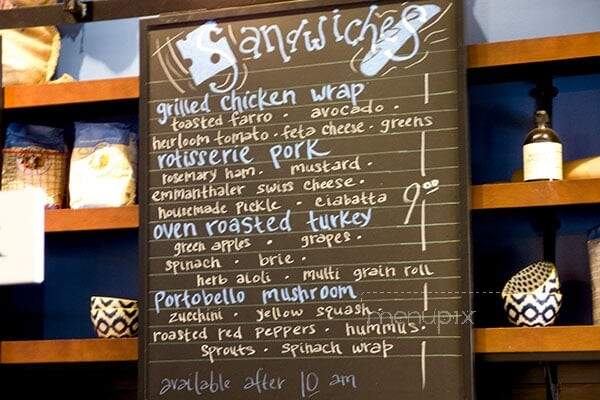 Sandwiches
grilled chicken wrap
toasted farro . avocado .
heirloom tomato . feta cheese . greens
rotisserie pork
rosemary ham . mustard .
emmanthaler swiss cheese .
housemade pickle . ciabatta
9.00
oven roasted turkey
green apples . grapes .
spinach . brie .
herb aioli . multi grain roll
portobello mushroom
zucchini . yellow squash
menupix
roasted red peppers . hummus .
sprouts . spinach wrap
available after 10 am